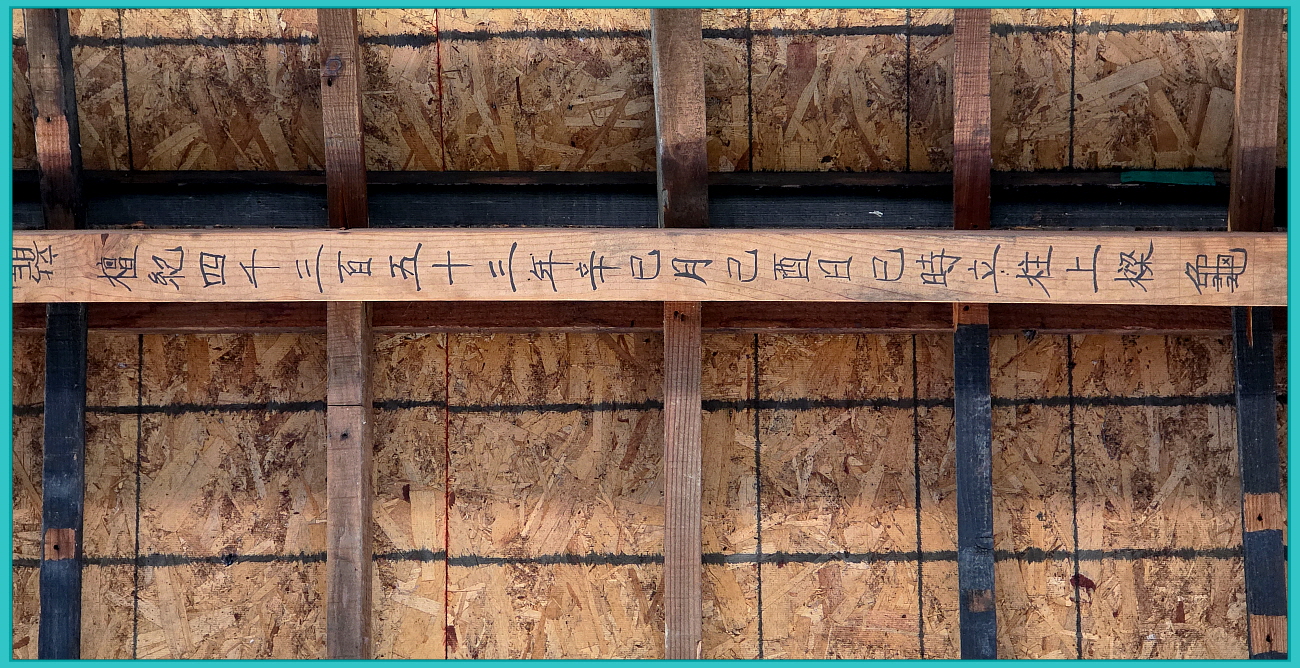 龍 檀紀四千三百五十三年辛巳月己酉日巳時立柱上樑 龜